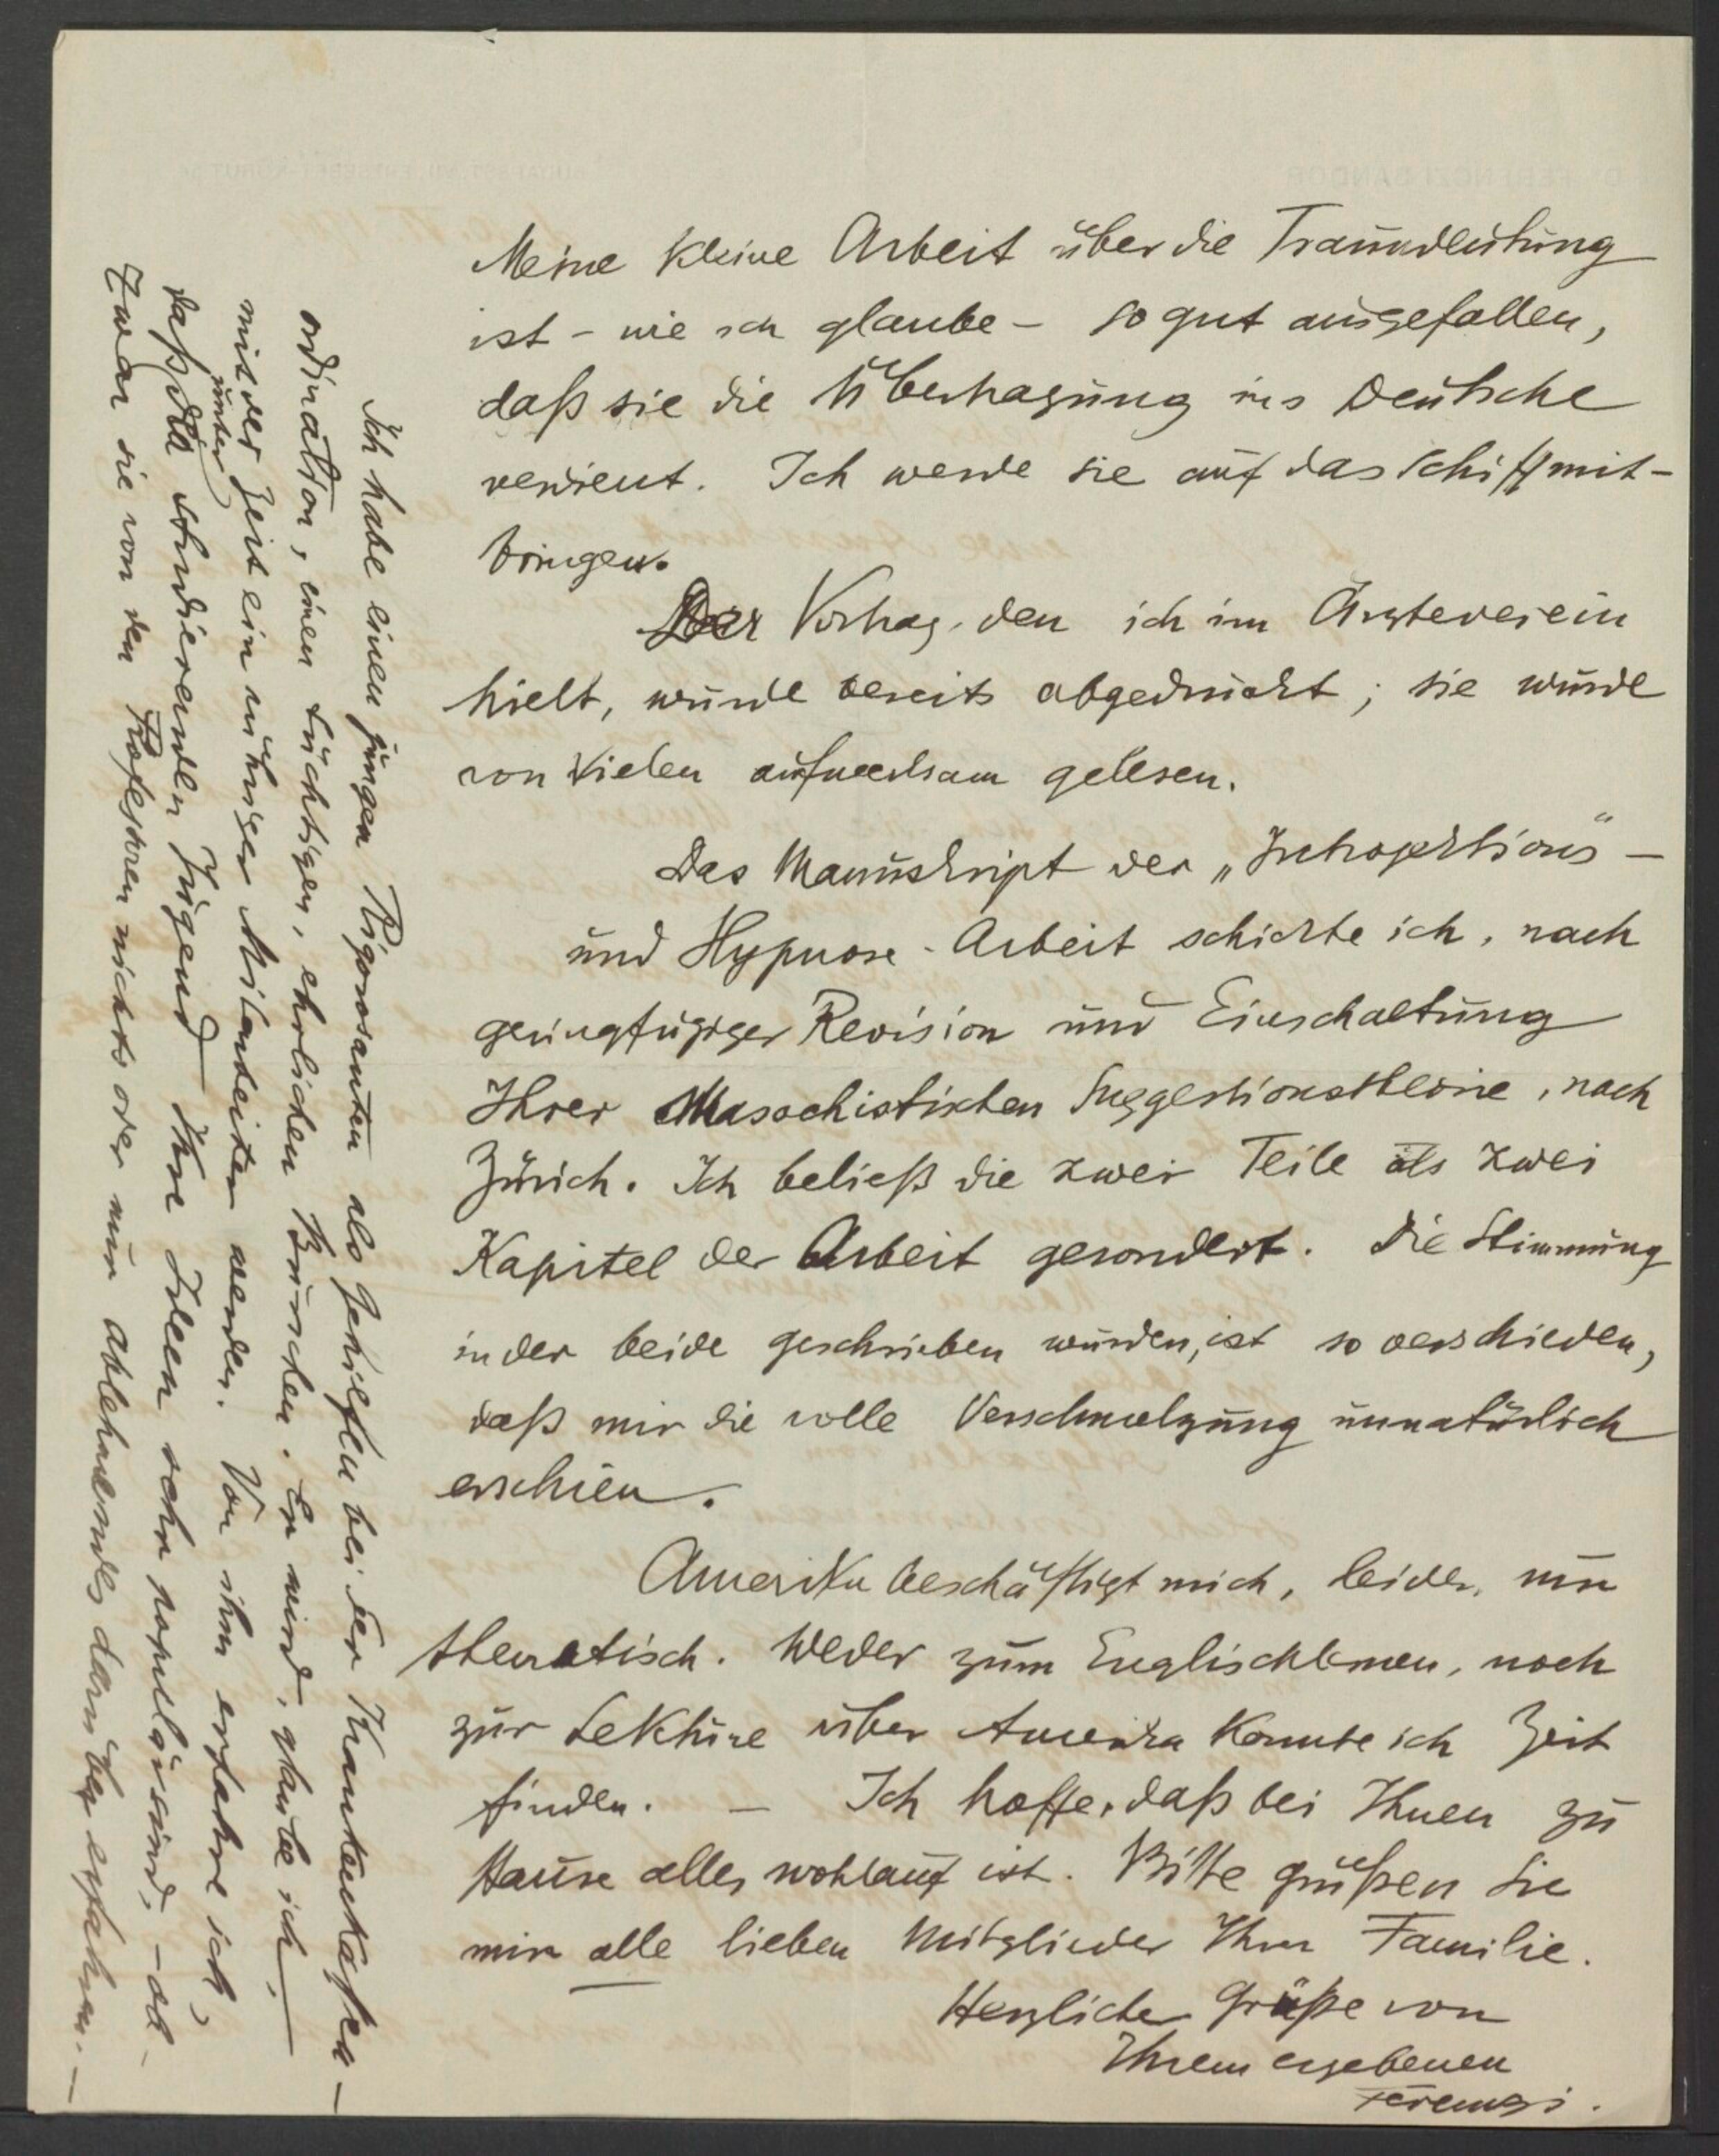 Meine kleine Arbeit über die Traumdeutung
ist – wie ich glaube – so gut ausgefallen,
daß sie die Übertragung ins Deutsche
verdient. Ich werde sie auf das Schiff mit-
bringen.
Der Vortrag, den ich im Ärzteverein
hielt, wurde bereits abgedruckt; sie wurde
von Vielen aufmerksam gelesen.
Das Manuskript der „Introjektions“ –
und Hypnose-Arbeit schickte ich, nach
geringfügiger Revision und Einschaltung
Ihrer Masochistischen Suggestionstheorie, nach
Zürich. Ich beließ die zwei Teile als zwei
Kapitel der Arbeit gesondert. Die Stimmung
in der beide geschrieben wurden, ist so verschieden,
daß mir die volle Verschmelzung unnatürlich
erschien.
Amerika beschäftigt mich, leider, nur
theoretisch. Weder zum Englischlernen, noch
zur Lektüre über Amerika konnte ich Zeit
finden. – Ich hoffe, daß bei Ihnen zu
Hause alles wohlauf ist. Bitte grüßen Sie
mir alle lieben Mitglieder Ihrer Familie.
Herzliche Grüße von
Ihrem ergebenen
Ferenczi.
Ich habe einen jungen Rigorosanten als Gehilfen bei der Krankenkassen –
ordination, einen tüchtigen, ehrlichen Burschen. Er wird, glaube ich,
mit der Zeit ein rühriger Mitarbeiter werden. Von ihm erfahre ich,
daß unter der studierenden Jugend Ihre Ideen sehr populär sind, – ob-
zwar sie von den Professoren nichts oder nur ablehnendes darüber erfahren. –